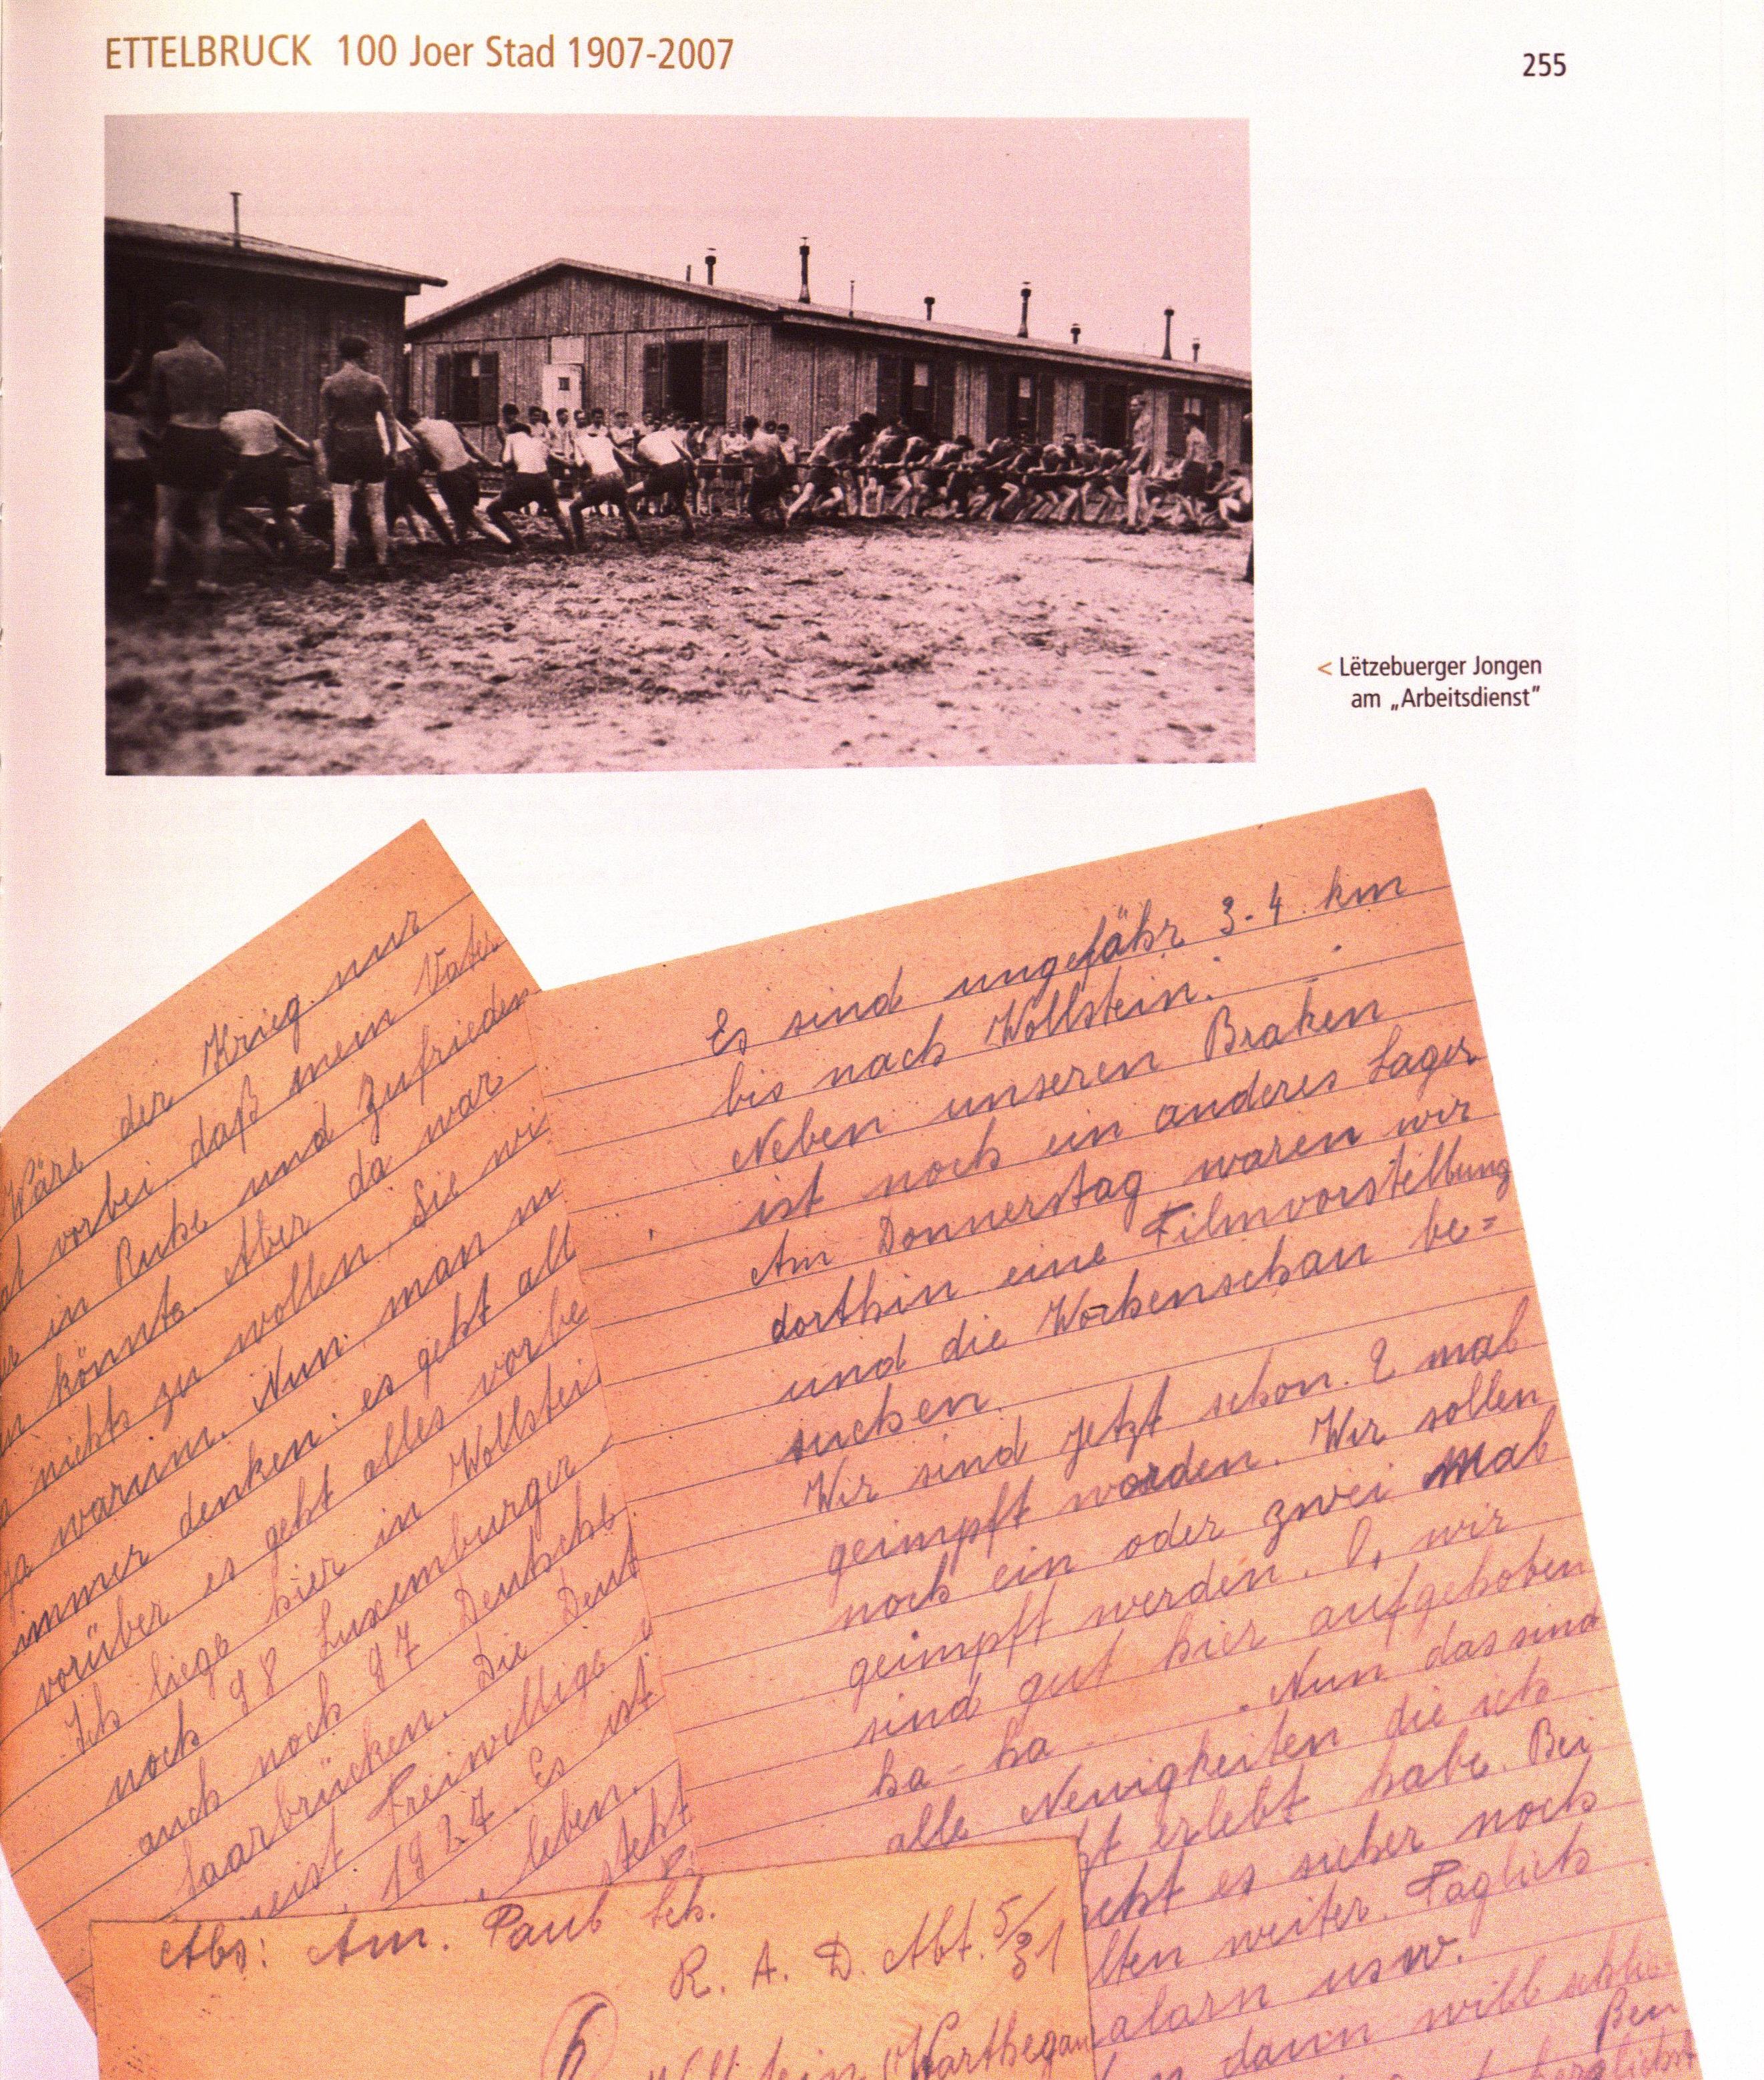 ETTELBRUCK 100 Joer Stad 1907-2007
255
< Lëtzebuerger Jongen
am „Arbeitsdienst"
Wäre der Krieg nur
vorbei, daß mein Vater
in Ruhe und Zufrieden
könnte. Aber da war
nichts zu wollen, Sie wi
warum. Nun man m
immer denken: es geht all
vorüber es geht alles vorbe
Ich liege hier in Wollstei
noch 98 Luxemburger
auch noch 97 Deutsche
Saarbrücken. Die Deut
meist Freiwillige
1927. Es ist
leben.
steht
Es sind ungefähr 3-4 km
bis nach Wollstein.
Neben unseren Braken
ist noch ein anderes Lager
Am Donnerstag waren wir
dorthin eine Filmvorstellung
und die Wochenschau be=
suchen.
Wir sind jetzt schon 2 mal
geimpft worden. Wir sollen
noch ein oder zwei mal
geimpft werden. O, wir
sind gut hier aufgehoben
ha-ha. Nun das sind
alle Neuigkeiten die ich
zt erlebt habe. Bei
geht es sicher noch
lten weiter. Täglich
alarn usw.
dann will schlie-
Abs: Am. Paul Sch.
R. A. D. Abt. 5/31
Wollstein (Warthegau